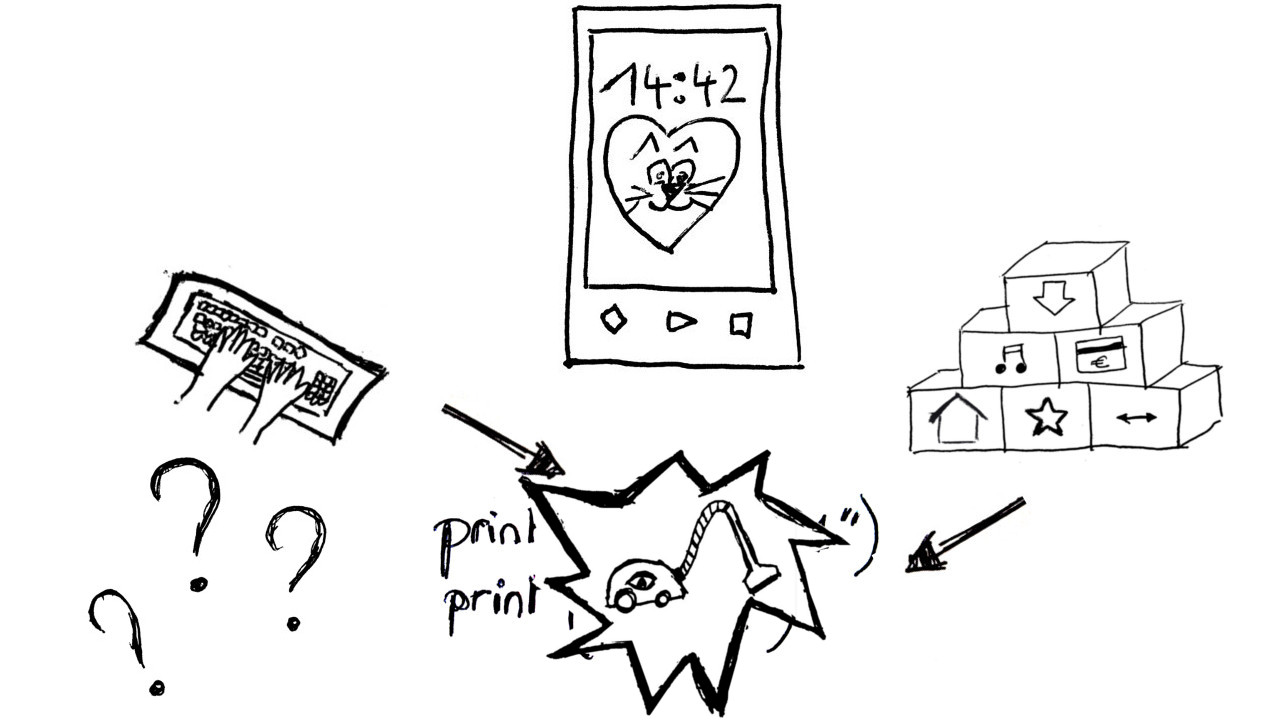 14:42
€
print ")
print )